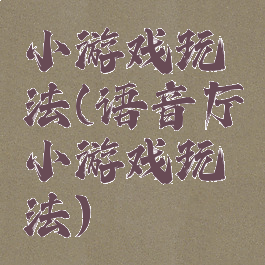 小游戏玩
法(语音厅
小游戏玩
法)